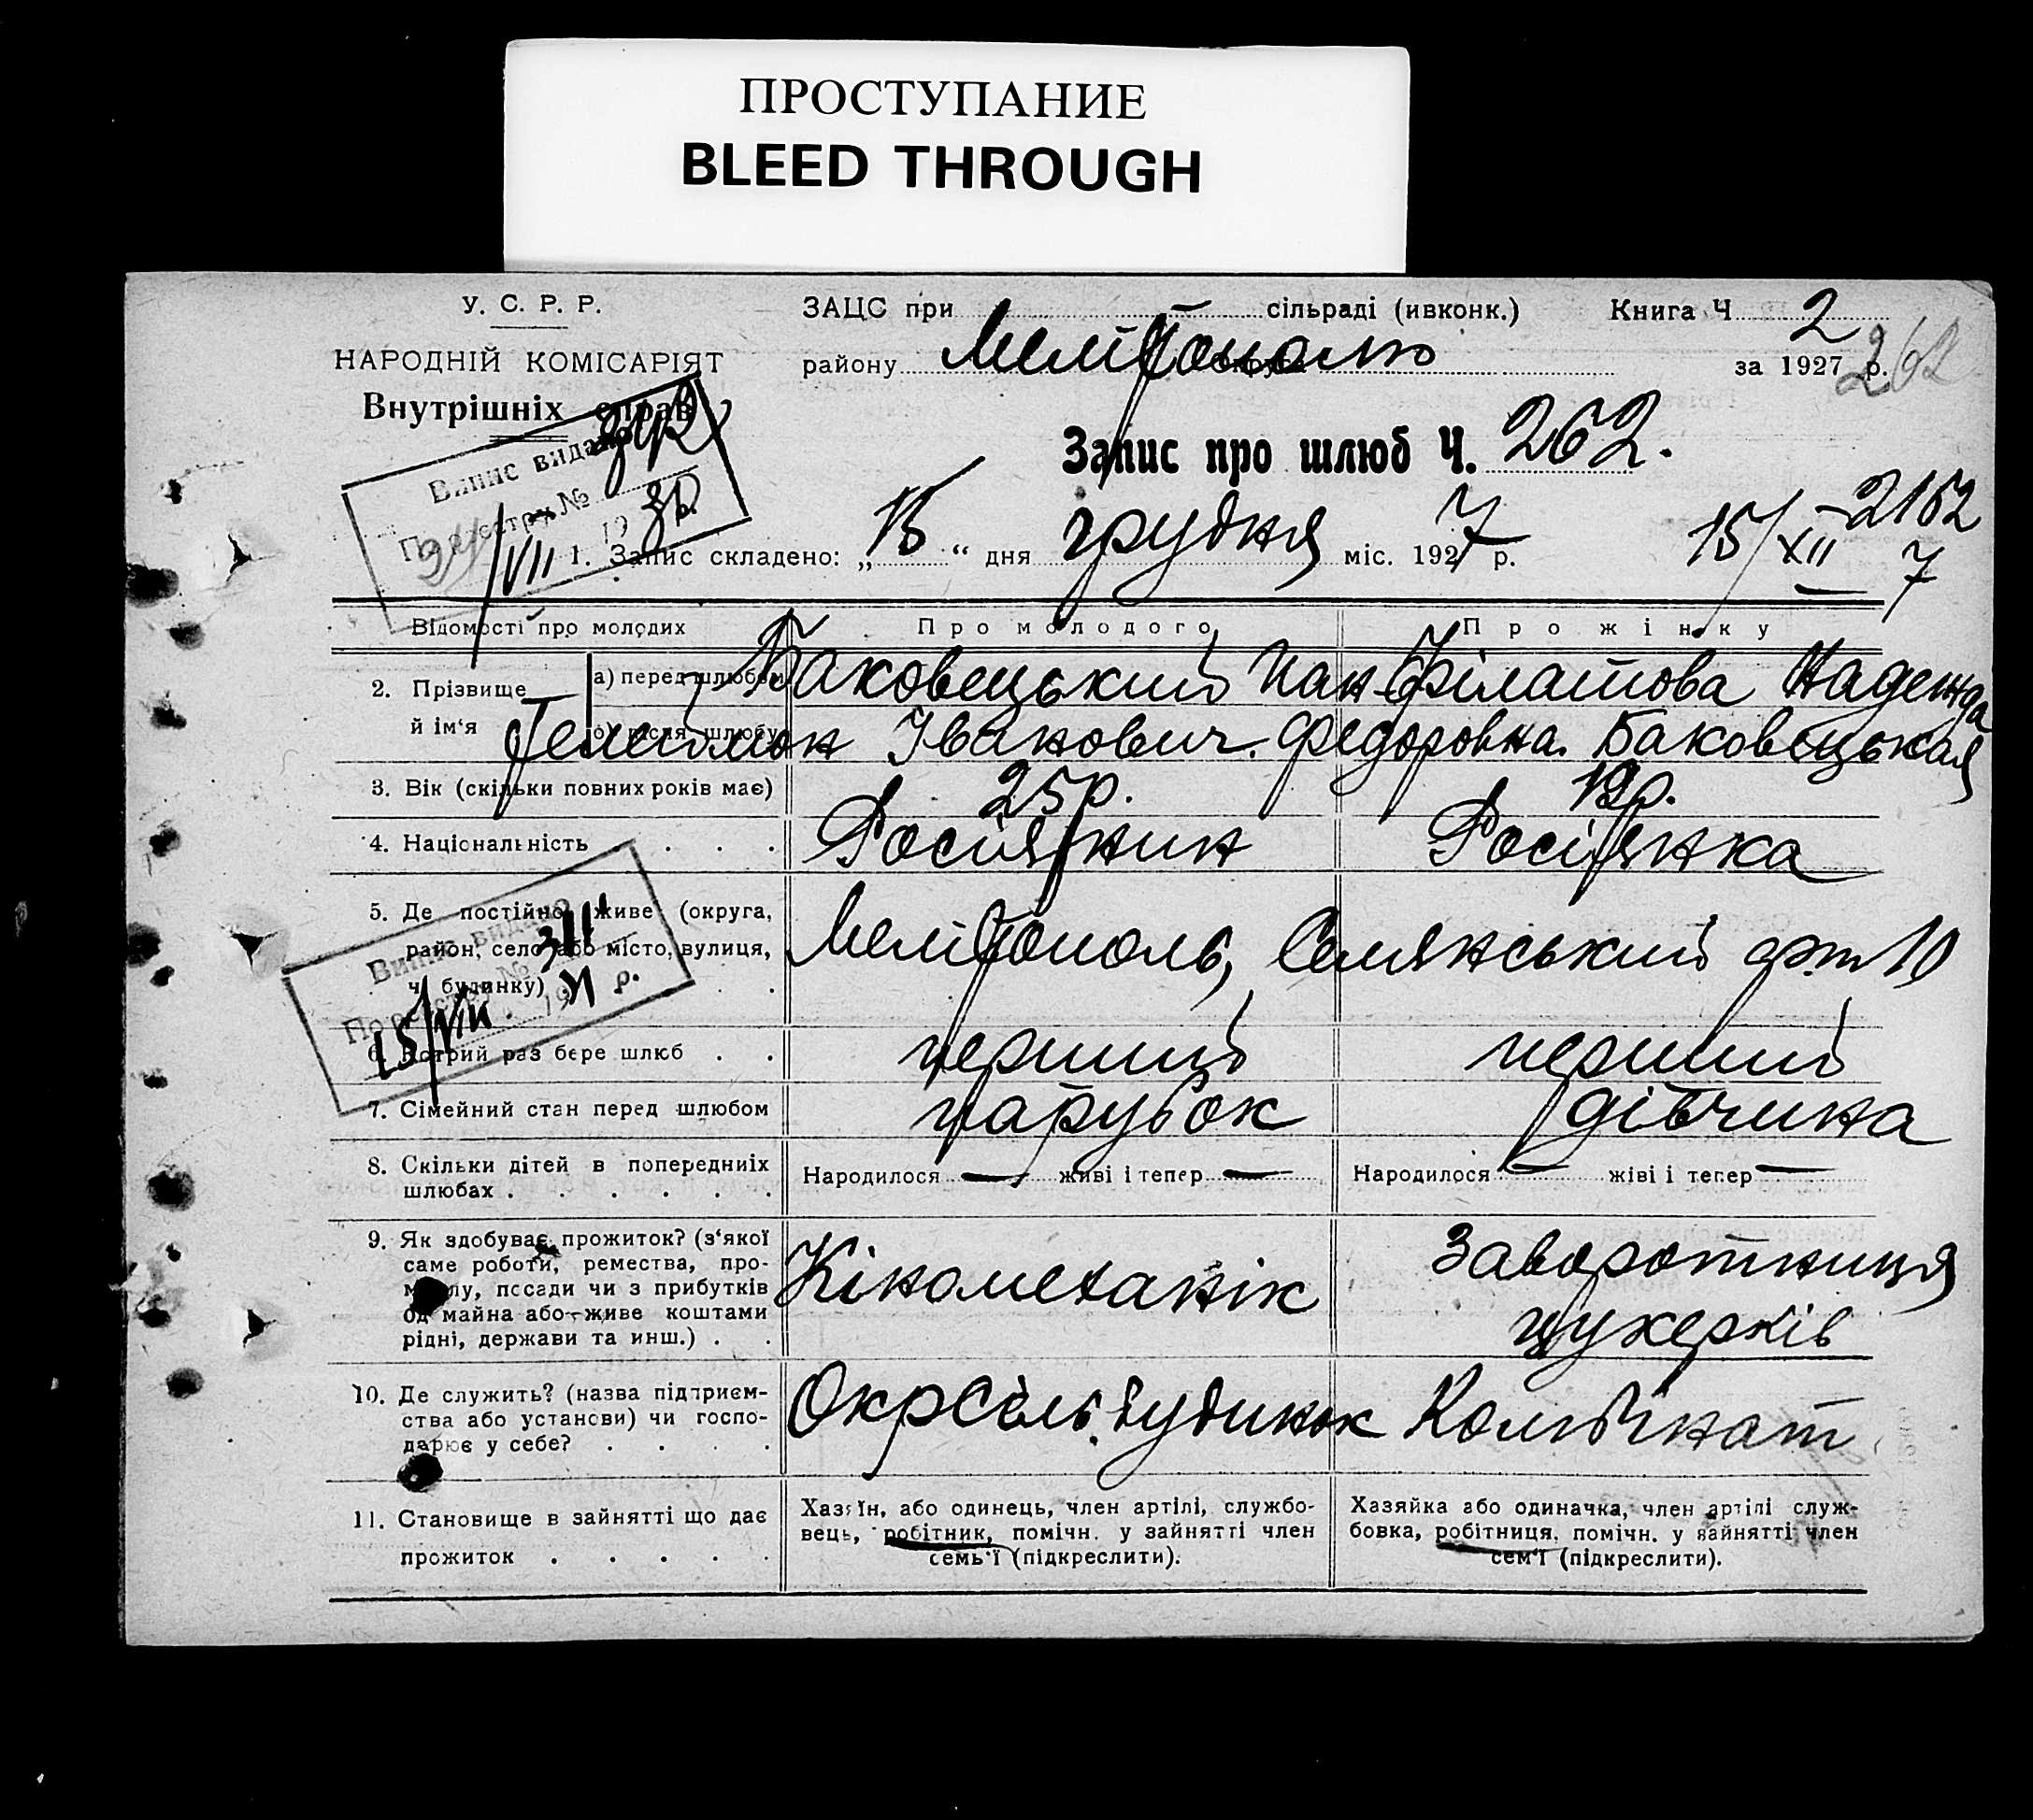 ПРОСТУПАНИЕ
BLEED THROUGH
У. С. Р. Р.
НАРОДНІЙ КОМІСАРІЯТ
Внутрішніх справ
ЗАЦС при сільраді (ивконк.)
району Мелітополю округи
Книга Ч 2
за 1927 р.
262
Запис про шлюб Ч. 262.
Випис видано
По реєстру №
19 р.
1. Запис складено: „15“ дня грудня міс. 1927 р.
15/XII 7 – 2152
Відомості про молодих
Про молодого
Про жінку
2. Прізвище й ім‘я
а) перед шлюбом
б) після шлюбу
Баковецький Пан-
телеймон Іванович.
Філатова Надежда
Федоровна. Баковецькая
3. Вік (скільки повних років має)
25 р.
19 р.
4. Національність . . .
Росіянин
Росіянка
5. Де постійно живе (округа,
район, село або місто, вулиця,
ч. будинку) .
Мелітополь, Семянський 10
Випис видано
По реєстру № 311
15/VIII 19 р.
6. Котрий раз бере шлюб . .
перший
перший
7. Сімейний стан перед шлюбом
парубок
дівчина
8. Скільки дітей в попередниіх
шлюбах . . . . . .
Народилося — живі і тепер —
Народилося — жіві і тепер —
9. Як здобуває прожиток? (з‘якої
саме роботи, ремества, про-
мислу, посади чи з прибутків
од майна або живе коштами
рідні, держави та инш.) . .
Кіномеханік
Заворотниця
цукерків
10. Де служить? (назва підприєм-
ства або установи) чи госпо-
дарює у себе? . . . .
ОкрСельбудинок
Комбінат
11. Становище в зайнятті що дає
прожиток . . . . .
Хазяїн, або одинець, член артілі, службо-
вець, робітник, помічн. у зайнятті член
семь‘ї (підкреслити).
Хазяйка або одиначка, член артілі служ-
бовка, робітниця, помічн. у зайнятті член
сем‘ї (підкреслити).